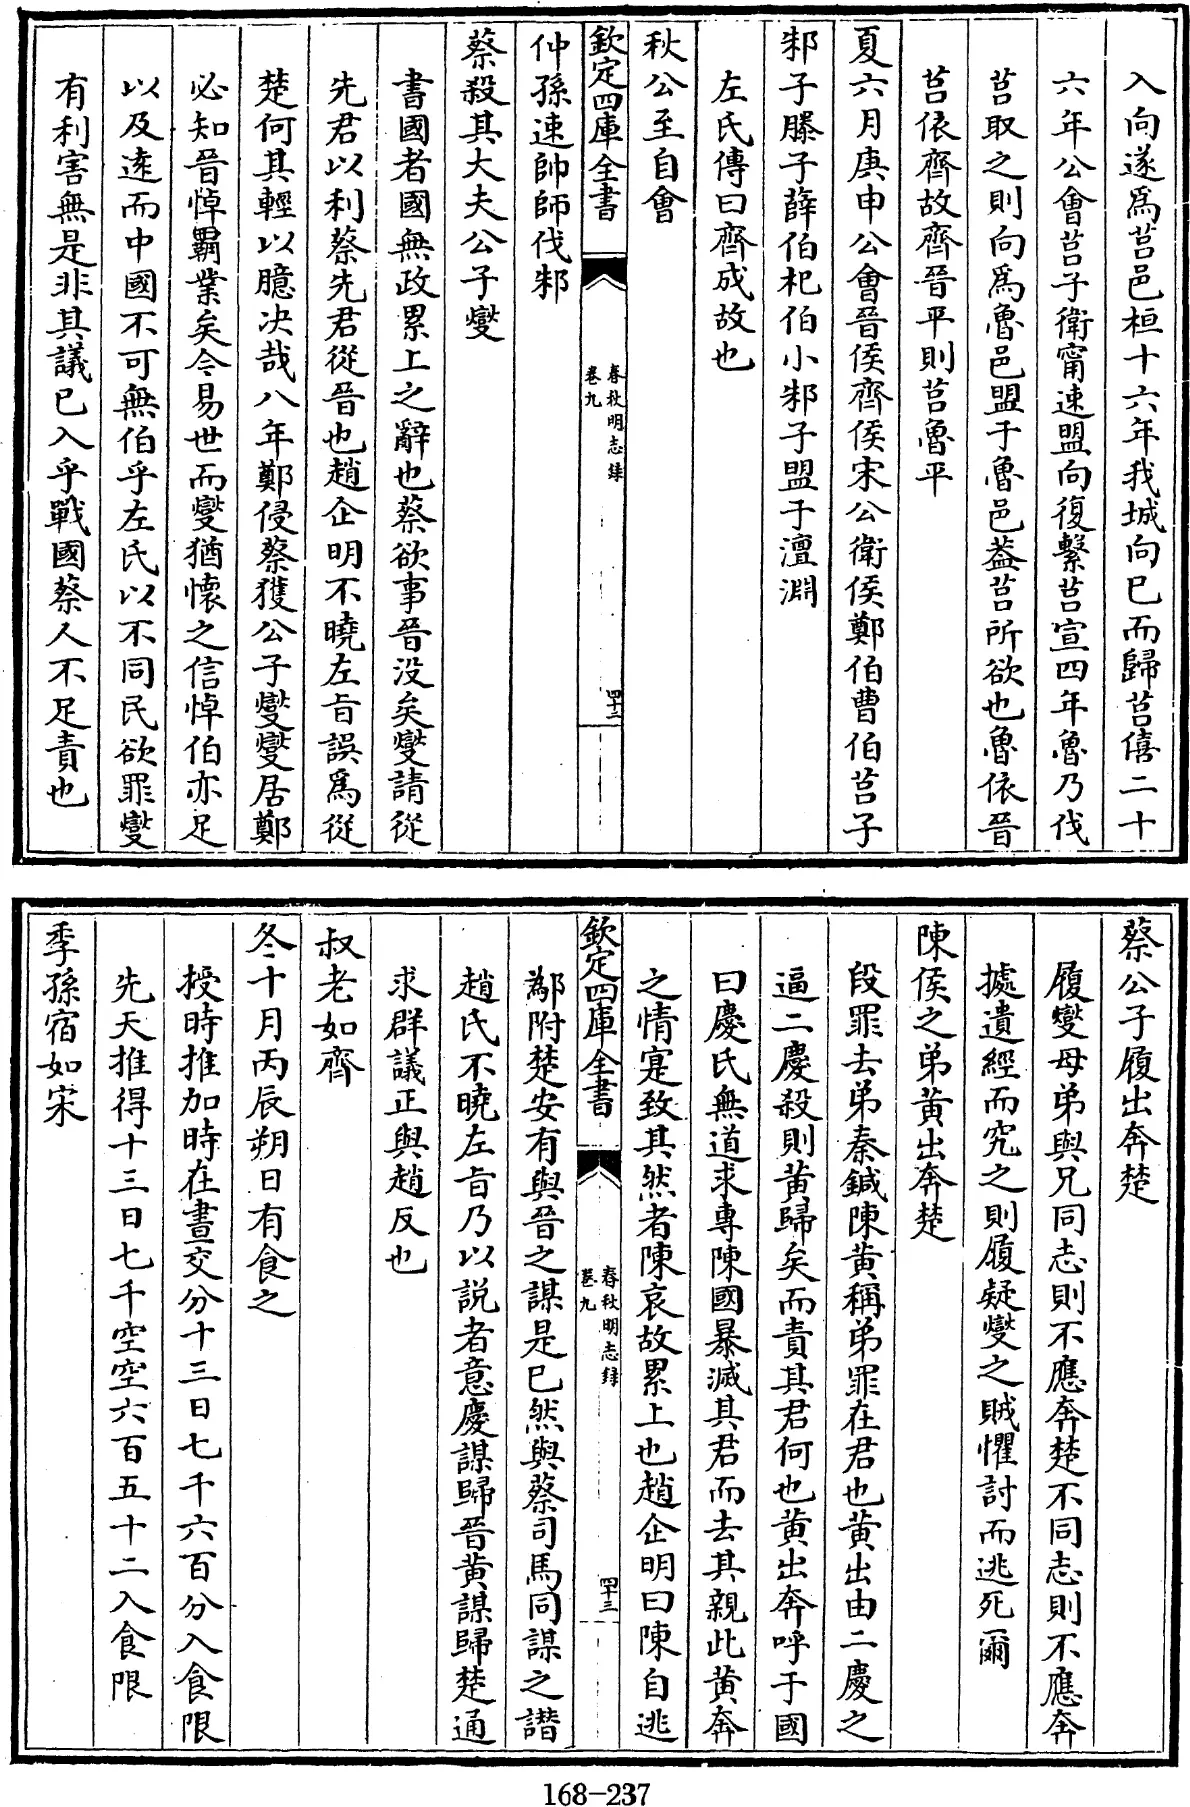 入向遂爲莒邑桓十六年我城向已而歸莒僖二十
六年公會莒子衛甯速盟向復繫莒宣四年魯乃伐
莒取之則向爲魯邑盟于魯邑葢莒所欲也魯依晉
莒依齊故齊晉平則莒魯平
夏六月庚申公會晉侯齊侯宋公衛侯鄭伯曹伯莒子
邾子滕子薛伯杞伯小邾子盟于澶淵
左氏傳曰齊成故也
秋公至自會
欽定四庫全書
春秋明志録
卷九
四十二
仲孫速帥師伐邾
蔡殺其大夫公子燮
書國者國無政累上之辭也蔡欲事晉没矣燮請從
先君以利蔡先君從晉也趙企明不曉左旨誤爲從
楚何其輕以臆决哉八年鄭侵蔡獲公子燮燮居鄭
必知晉悼霸業矣今易世而燮猶懷之信悼伯亦足
以及逺而中國不可無伯乎左氏以不同民欲罪燮
有利害無是非其議已入乎戰國蔡人不足責也
蔡公子履出奔楚
履燮母弟與兄同志則不應奔楚不同志則不應奔
據遺經而究之則履疑燮之賊懼討而逃死爾
陳侯之弟黄出奔楚
段罪去弟秦鍼陳黄稱弟罪在君也黄出由二慶之
逼二慶殺則黄歸矣而責其君何也黄出奔呼于國
曰慶氏無道求專陳國暴滅其君而去其親此黄奔
之情寔致其然者陳哀故累上也趙企明曰陳自逃
欽定四庫全書
春秋明志録
卷九
四十三
鄬附楚安有與晉之謀是已然與蔡司馬同謀之譖
趙氏不曉左旨乃以説者意慶謀歸晉黄謀歸楚通
求群議正與趙反也
叔老如齊
冬十月丙辰朔日有食之
授時推加時在晝交分十三日七千六百分入食限
先天推得十三日七千空空六百五十二入食限
季孫宿如宋
168-237